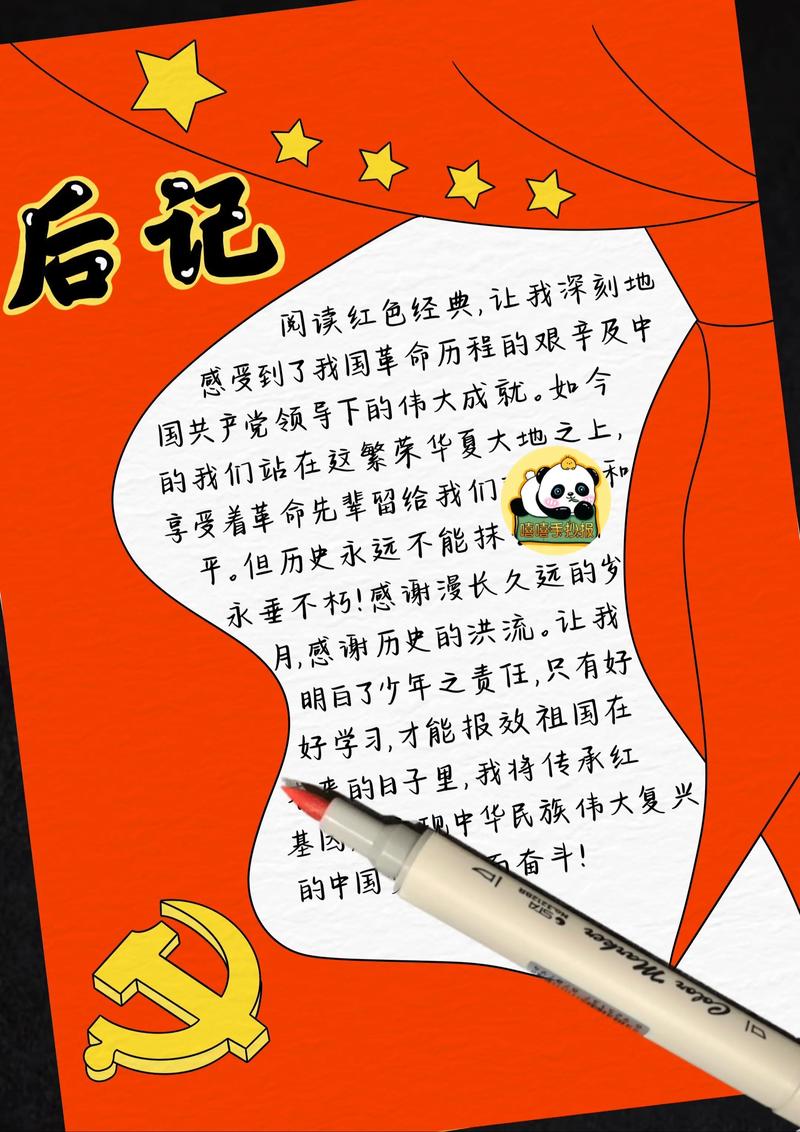 后记
阅读红色经典,让我深刻地
感受到了我国革命历程的艰辛及中
国共产党领导下的伟大成就。如今
的我们站在这繁荣华夏大地之上,
享受着革命先辈留给我们 和
平。但历史永远不能抹
嘻嘻手抄报
永垂不朽!感谢漫长久远的岁
月,感谢历史的洪流。让我
明白了少年之责任,只有好
好学习,才能报效祖国在
来的日子里,我将传承红
基因 现中华民族伟大复兴
的中国 而奋斗!
STA
No.3212BR
Color Marker